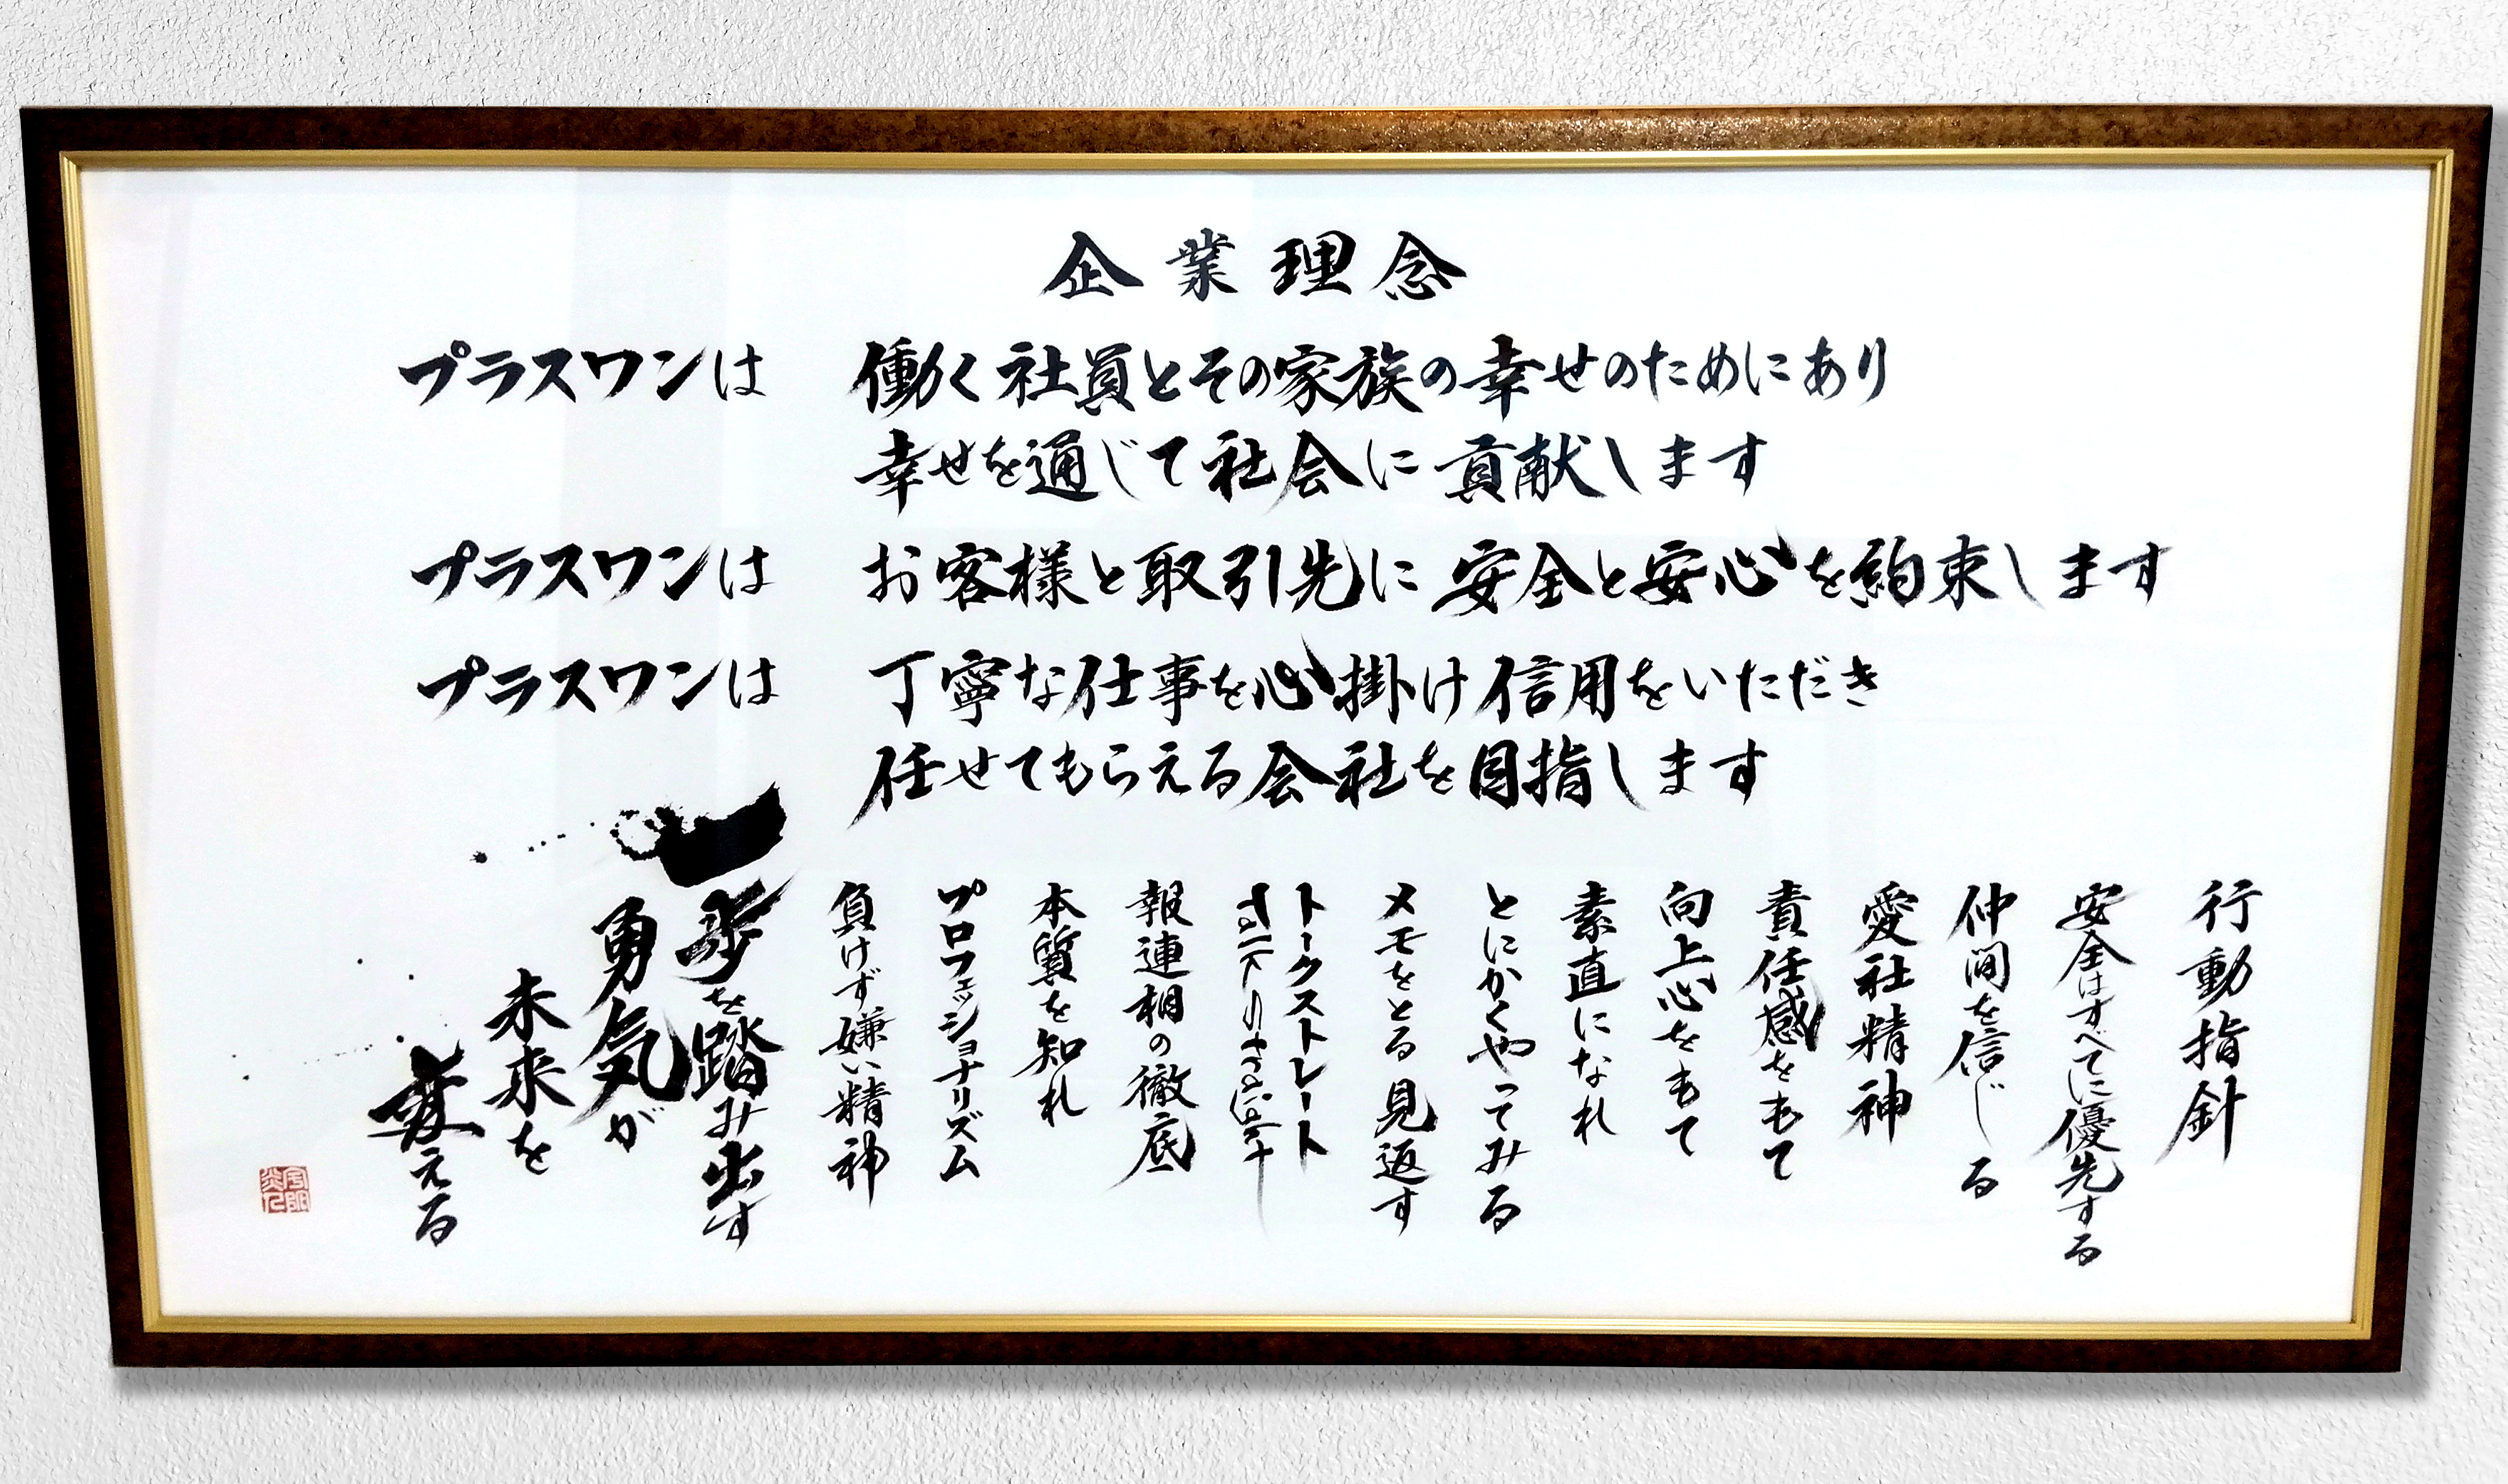 企業理念
プラスワンは 働く社員とその家族の幸せのためにあり
幸せを通じて社会に貢献します
プラスワンは お客様と取引先に安全と安心を約束します
プラスワンは 丁寧な仕事を心掛け信用をいただき
任せてもらえる会社を目指します
行動指針
安全はすべてに優先する
仲間を信じる
愛社精神
責任感をもて
向上心をもて
素直になれ
とにかくやってみる
メモをとる見返す
トークストレート
報連相の徹底
本質を知れ
プロフェッショナリズム
負けず嫌い精神
一歩を踏み出す
勇気が
未来を
変える